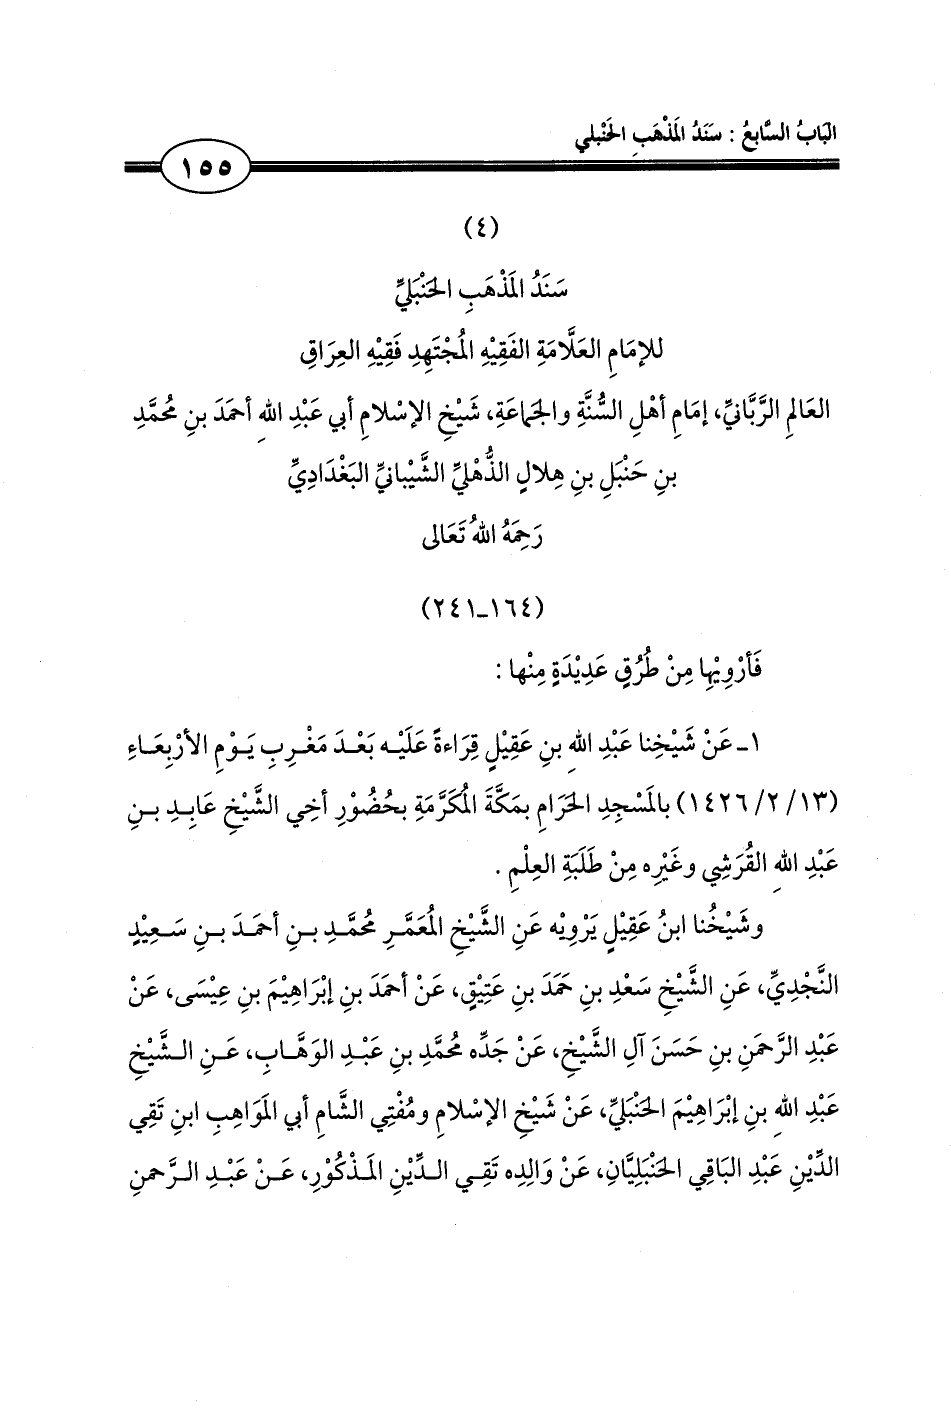 البَابُ السَّابِعُ : سَنَدُ المَذْهَبِ الحَنْبَلي
١٥٥
(٤)
سَنَدُ المَذْهَبِ الحَنْبَليِّ
للإمَامِ العَلَّامَةِ الفَقِيْهِ المُجْتَهِدِ فَقِيْهِ العِرَاقِ
العَالِمِ الرَّبَّانيِّ، إمَامِ أهْلِ السُّنَّةِ والجَمَاعَةِ، شَيْخِ الإسْلامِ أبي عَبْدِ اللهِ أحمَدَ بنِ مُحمَّدِ
بنِ حَنْبَلِ بنِ هِلالٍ الذُّهْليِّ الشَّيْبانيِّ البَغْدَادِيِّ
رَحِمَهُ اللهُ تَعَالى
(١٦٤-٢٤١)
فَأرْوِيْها مِنْ طُرُقٍ عَدِيْدَةٍ مِنْها :
١- عَنْ شَيْخِنا عَبْدِ اللهِ بنِ عَقِيْلٍ قِرَاءةً عَلَيْه بَعْدَ مَغْرِبِ يَوْمِ الأرْبِعَاءِ
(١٤٢٦/٢/١٣) بالمَسْجِدِ الحَرَامِ بمَكَّةَ المُكَرَّمَةِ بحُضُوْرِ أخِي الشَّيْخِ عَابِدِ بنِ
عَبْدِ اللهِ القُرَشِي وغَيْرِه مِنْ طَلَبَةِ العِلْمِ .
وشَيْخُنا ابنُ عَقِيْلٍ يَرْوِيْه عَنِ الشَّيْخِ المُعَمَّرِ مُحمَّدِ بنِ أحمَدَ بنِ سَعِيْدٍ
النَّجْدِيِّ، عَنِ الشَّيْخِ سَعْدِ بنِ حَمَدَ بنِ عَتِيْقٍ، عَنْ أحمَدَ بنِ إبْرَاهِيْمَ بنِ عِيْسَى، عَنْ
عَبْدِ الرَّحمَنِ بنِ حَسَنَ آلِ الشَّيْخِ، عَنْ جَدِّه مُحمَّدِ بنِ عَبْدِ الوَهَّابِ، عَنِ الشَّيْخِ
عَبْدِ اللهِ بنِ إبْرَاهِيْمَ الحَنْبَليِّ، عَنْ شَيْخِ الإسْلامِ ومُفْتِي الشَّامِ أبي المَوَاهِبِ ابنِ تَقِي
الدِّيْنِ عَبْدِ البَاقِي الحَنْبَلِيَّانِ، عَنْ وَالِدِه تَقِي الدِّيْنِ المَذْكُوْرِ، عَنْ عَبْدِ الرَّحمنِ